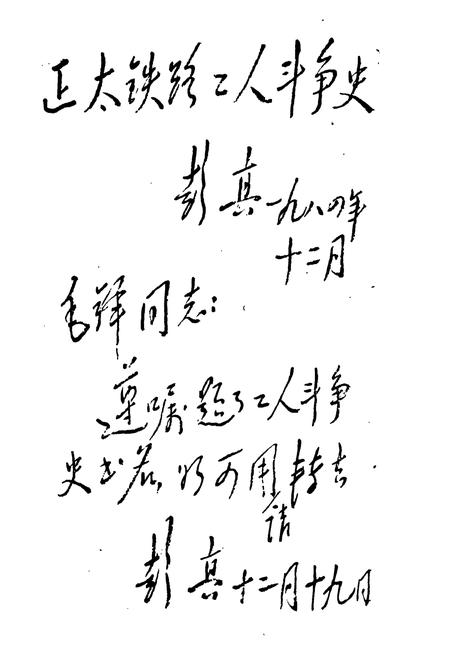 正太铁路工人斗争史
彭真一九八四年
十二月
毛铎同志：
遵嘱题了工人斗争
史书名，如可用请转去.
彭真十二月十九日